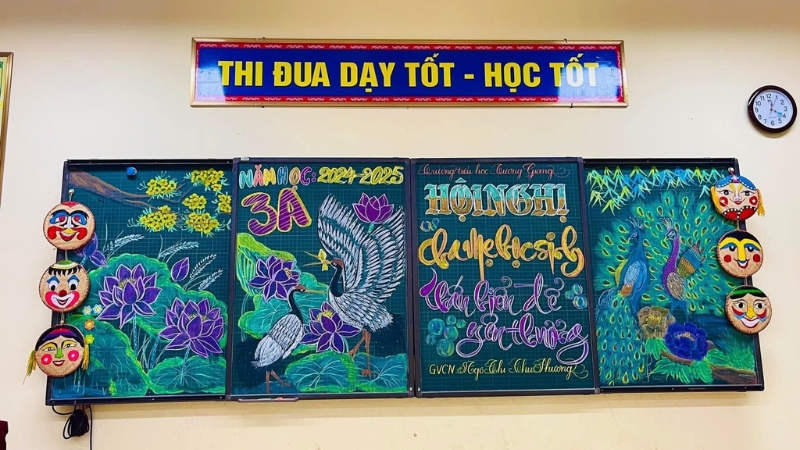 THI ĐUA DẠY TỐT - HỌC TỐT
NĂM HỌC: 2024-2025
3A
Trường tiểu học Tương Giang
HỘI NGHỊ
cha mẹ học sinh
Thân thiện để
yêu thương
GVCN Ngô Thị Thu Hương